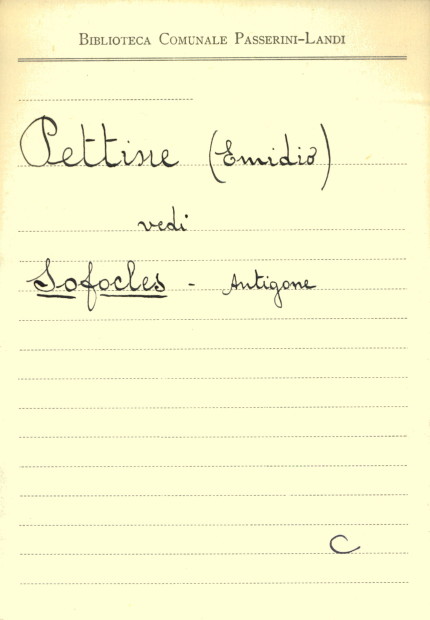 BIBLIOTECA COMUNALE PASSERINI-LANDI
Pettine (Emidio)
vedi
Sofocles - Antigone
C